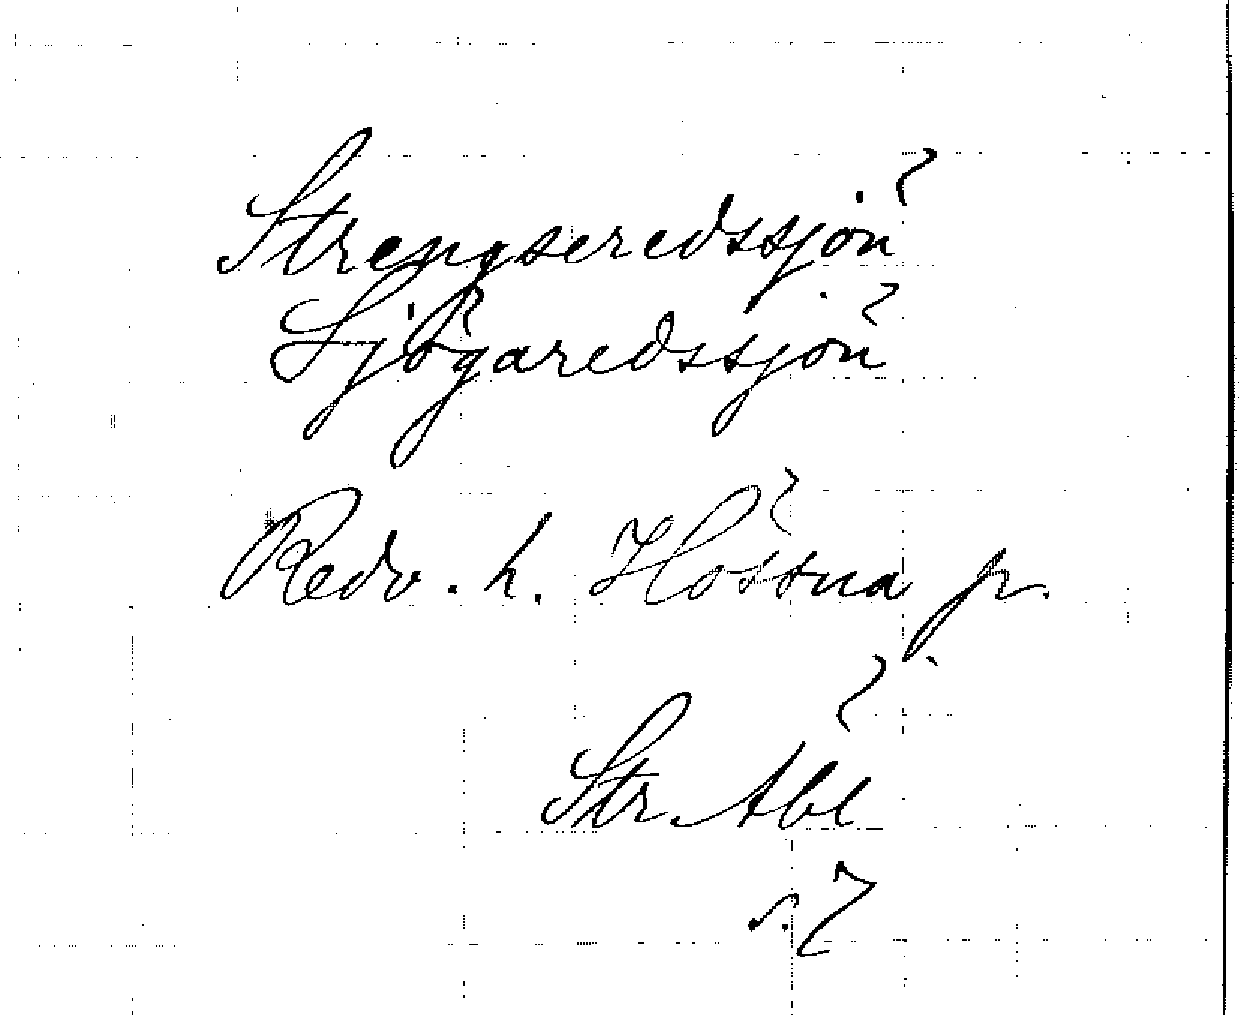 Strengseredssjön
Sjögaredssjön
Redv. h. Hössna sn.
Str. Åbl
s. 7